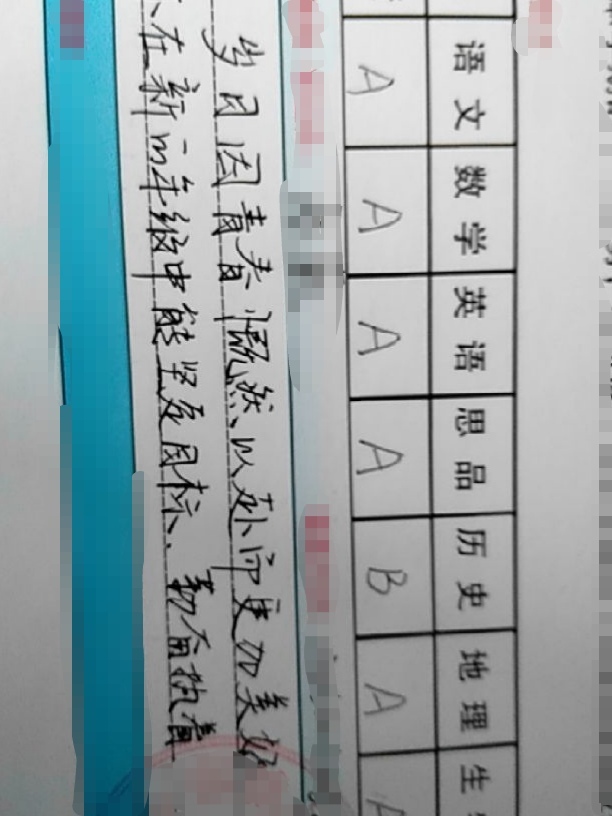 语文 数学 英语 思品 历史 地理 生
A A A A B A A
岁月因青春慨然以赴而更加美好
在新的年级中能坚定目标、勤奋执着